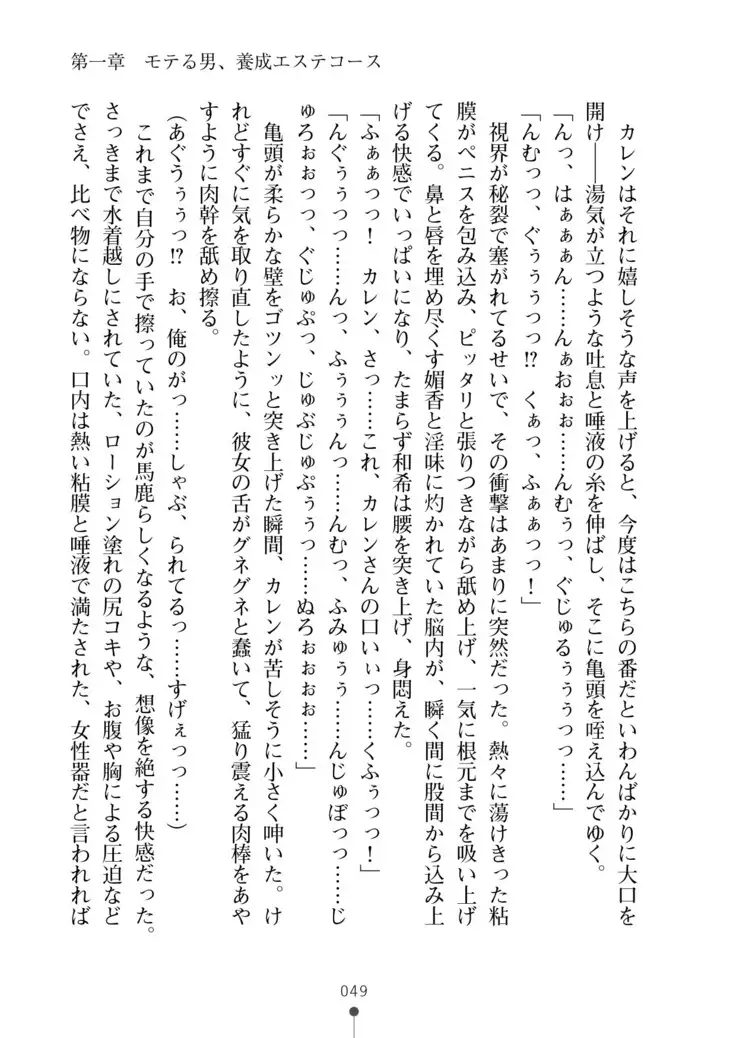 第一章　モテる男、養成エステコース
　カレンはそれに嬉しそうな声を上げると、今度はこちらの番だといわんばかりに大口を
開け――湯気が立つような吐息と唾液の糸を伸ばし、そこに亀頭を咥え込んでゆく。
「んっ、はぁぁぁん……んぁおぉぉ……んむぅっ、ぐじゅるぅぅぅっっ……」
「んむっっ、ぐぅぅぅっっ!?　くぁっ、ふぁぁぁっっ！」
　視界が秘裂で塞がれてるせいで、その衝撃はあまりに突然だった。熱々に蕩けきった粘
膜がペニスを包み込み、ピッタリと張りつきながら舐め上げ、一気に根元までを吸い上げ
てくる。鼻と唇を埋め尽くす媚香と淫味に灼かれていた脳内が、瞬く間に股間から込み上
げる快感でいっぱいになり、たまらず和希は腰を突き上げ、身悶えた。
「ふぁぁっっ！　カレン、さっ……これ、カレンさんの口いぃっ……くふぅっっ！」
「んぐぅぅっっ……んっ、ふぅぅぅんっ……んむっ、ふみゅぅぅ……んじゅぽっっ……じ
ゅろぉぉっっ、ぐじゅぷっ、じゅぶじゅぷぅぅっ……ぬろぉぉぉぉ……」
　亀頭が柔らかな壁をゴツンッと突き上げた瞬間、カレンが苦しそうに小さく呻いた。け
れどすぐに気を取り直したように、彼女の舌がグネグネと蠢いて、猛り震える肉棒をあや
すように肉幹を舐め擦る。
（あぐうぅぅっ!?　お、俺のがっ……しゃぶ、られてるっ……すげぇっっ……）
　これまで自分の手で擦っていたのが馬鹿らしくなるような、想像を絶する快感だった。
さっきまで水着越しにされていた、ローション塗れの尻コキや、お腹や胸による圧迫など
でさえ、比べ物にならない。口内は熱い粘膜と唾液で満たされた、女性器だと言われれば
049